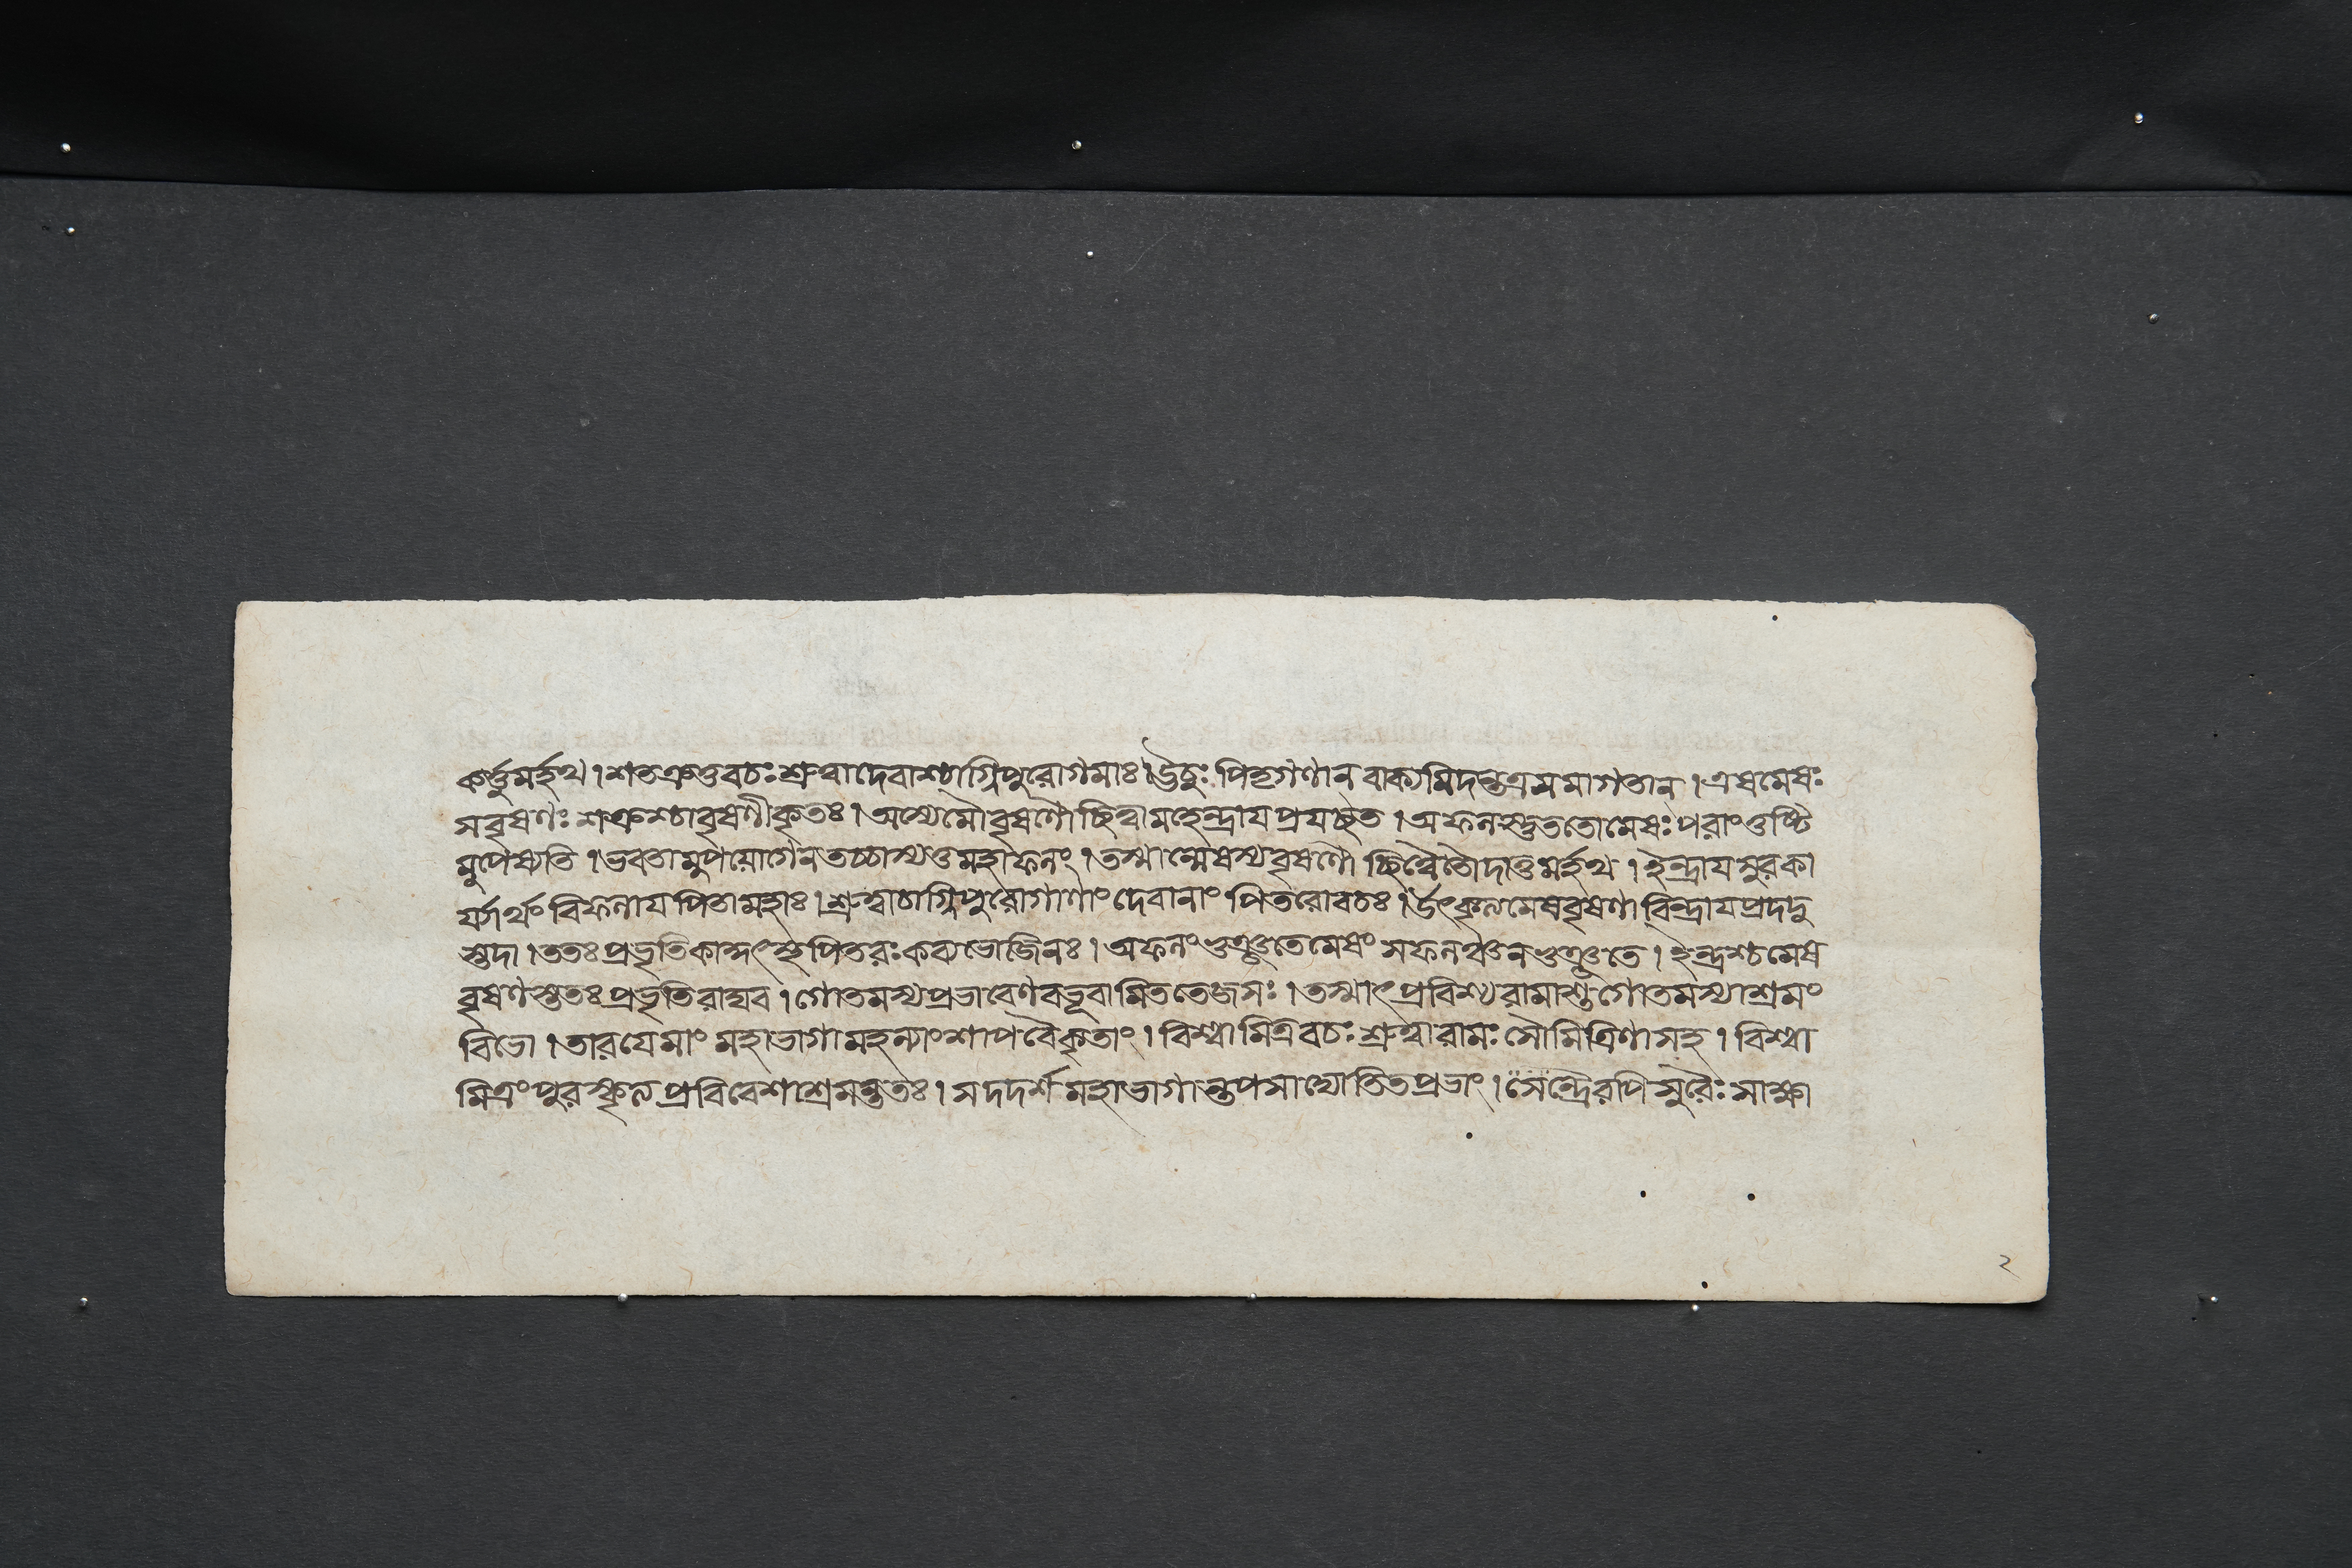 কর্ত্তুমর্হথ। শতক্রতুবচঃ শ্রুত্বা দেবাশ্চাগ্নিপুরোগমাঃ। ঊচুঃ পিতৃগণান্ বাক্যমিদন্তত্রসমাগতান্। এষমেষঃ
সবৃষণঃ শক্রশ্চাবৃষণীকৃতঃ। অস্যেমৌবৃষণৌচ্ছিত্বামহেন্দ্রায প্রযচ্ছত। অফলস্তুততোমেষঃ পরাংতুষ্টি
মুপেষ্যতি। ভবতামুপযোগেনতচ্চাস্যতুমহাফলং। তস্মান্মেষস্যবৃষণৌ চ্ছিত্বৈতৌদাতুমর্হথ। ইন্দ্রাযসুরকা
র্যার্থং বিফলায পিতামহাঃ। শ্রুত্বাচাগ্নিপুরোগাণাং দেবানাং পিতরোবচঃ। উৎকৃত্যমেষবৃষণাবিন্দ্রাযপ্রদদু
স্তদা। ততঃ প্রভৃতিকাকুৎস্থপিতরঃ কব্যভোজিনঃ। অফলং ভুঞ্জতেমেষং সফলঞ্চনভুঞ্জতে। ইন্দ্রশ্চমেষ
বৃষণস্ততঃ প্রভৃতিরাঘব। গোতমস্যপ্রভাবেণবভূবামিততেজসঃ। তস্মাৎ প্রবিশ্য রামাশুগোতমস্যাশ্রমং
বিভো। তারযেমাং মহাভাগামহল্যাংশাপবৈকৃতাং। বিশ্বামিত্রবচঃ শ্রুত্বারামঃ সৌমিত্রিণাসহ। বিশ্বা
মিত্রং পুরস্কৃত্য প্রবিবেশাশ্রমন্ততঃ। সদদর্শ মহাভাগান্তপসাদ্যোতিতপ্রভাং। সেন্দ্রৈরপি সুরৈঃ সাক্ষা
২